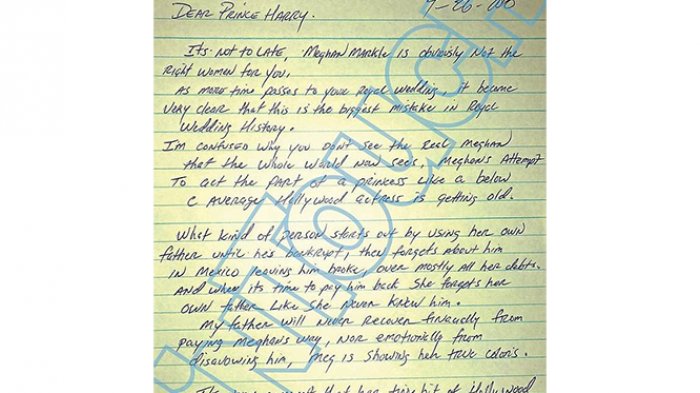 DEAR PRINCE HARRY.
ITS NOT TO LATE, MEGHAN MARKLE IS obviously NOT the
RIGHT WOMEN FOR YOU.
AS MORE TIME PASSES TO YOUR ROYAL WEDDING, IT BECAME
VERY CLEAR THAT THIS IS THE BIGGEST MISTAKE IN ROYAL
WEDDING HISTORY.
IM CONFUSED WHY YOU DON'T SEE THE REAL MEGHAN
THAT THE WHOLE WORLD NOW SEES. MEGHAN'S ATTEMPT
TO ACT THE PART OF A PRINCESS LIKE A BELOW
C AVERAGE HOLLYWOOD ACTRESS IS GETTING OLD.
WHAT KIND OF PERSON STARTS OUT BY USING HER OWN
FATHER UNTIL HE'S BANKRUPT, THEN FORGETS ABOUT HIM
IN MEXICO LEAVING HIM BROKE, OVER MOSTLY ALL HER DEBTS.
AND WHEN ITS TIME TO PAY HIM BACK SHE FORGETS HER
OWN FATHER LIKE SHE NEVER KNEW HIM.
MY FATHER WILL NEVER RECOVER FINANCIALLY FROM
PAYING MEGHAN'S WAY, NOR EMOTIONALLY FROM
DISAVOWING HIM, MEG IS SHOWING HER TRUE COLORS.
THAT HER TINY BIT OF HOLLYWOOD